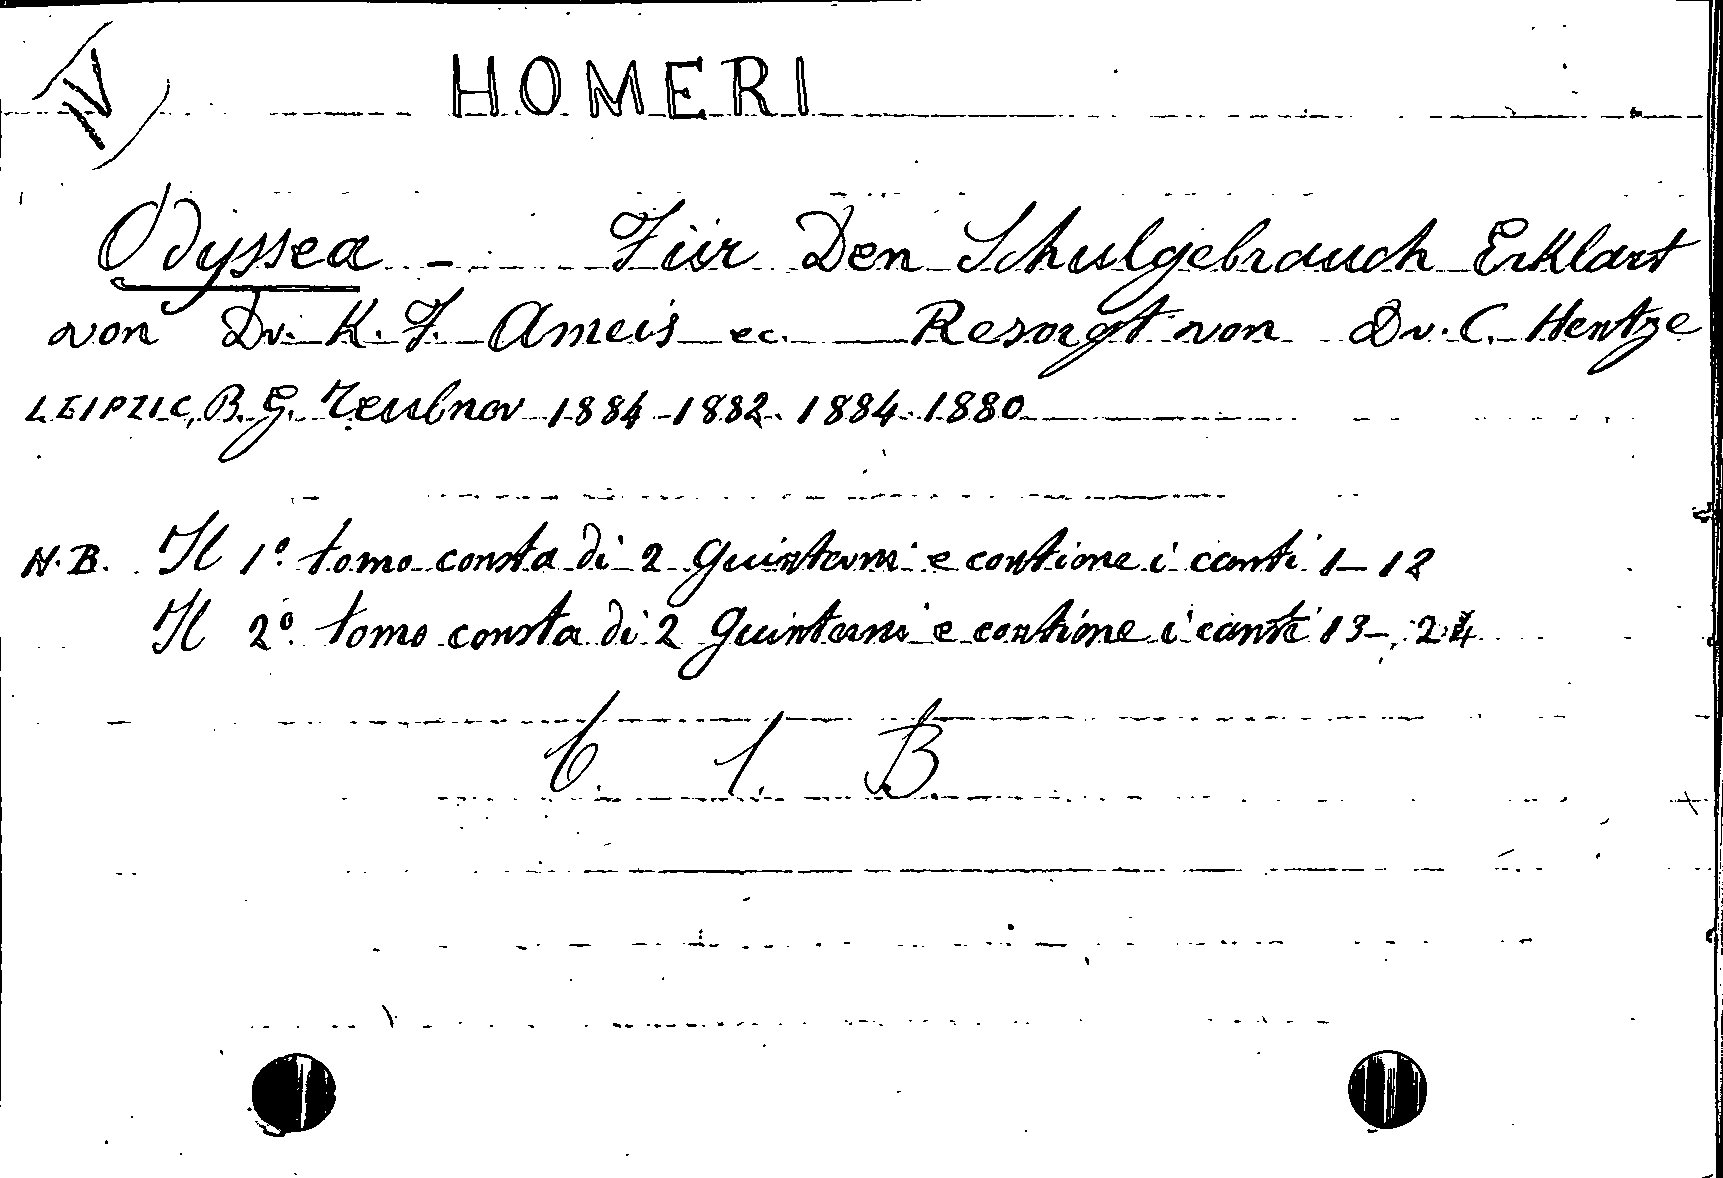 IV
HOMERI
Odyssea - Für Den Schulgebrauch Erklart
von Dr. K. F. Ameis ec. Resorgt von Dr. C. Hentze
LEIPZIC, B. G. Teubner 1884-1882. 1884. 1880
N.B. Il 1º tomo consta di 2 Quinterni e contiene i canti 1-12
Il 2º tomo consta di 2 Quinterni e contiene i canti 13-24
6. 1. B.